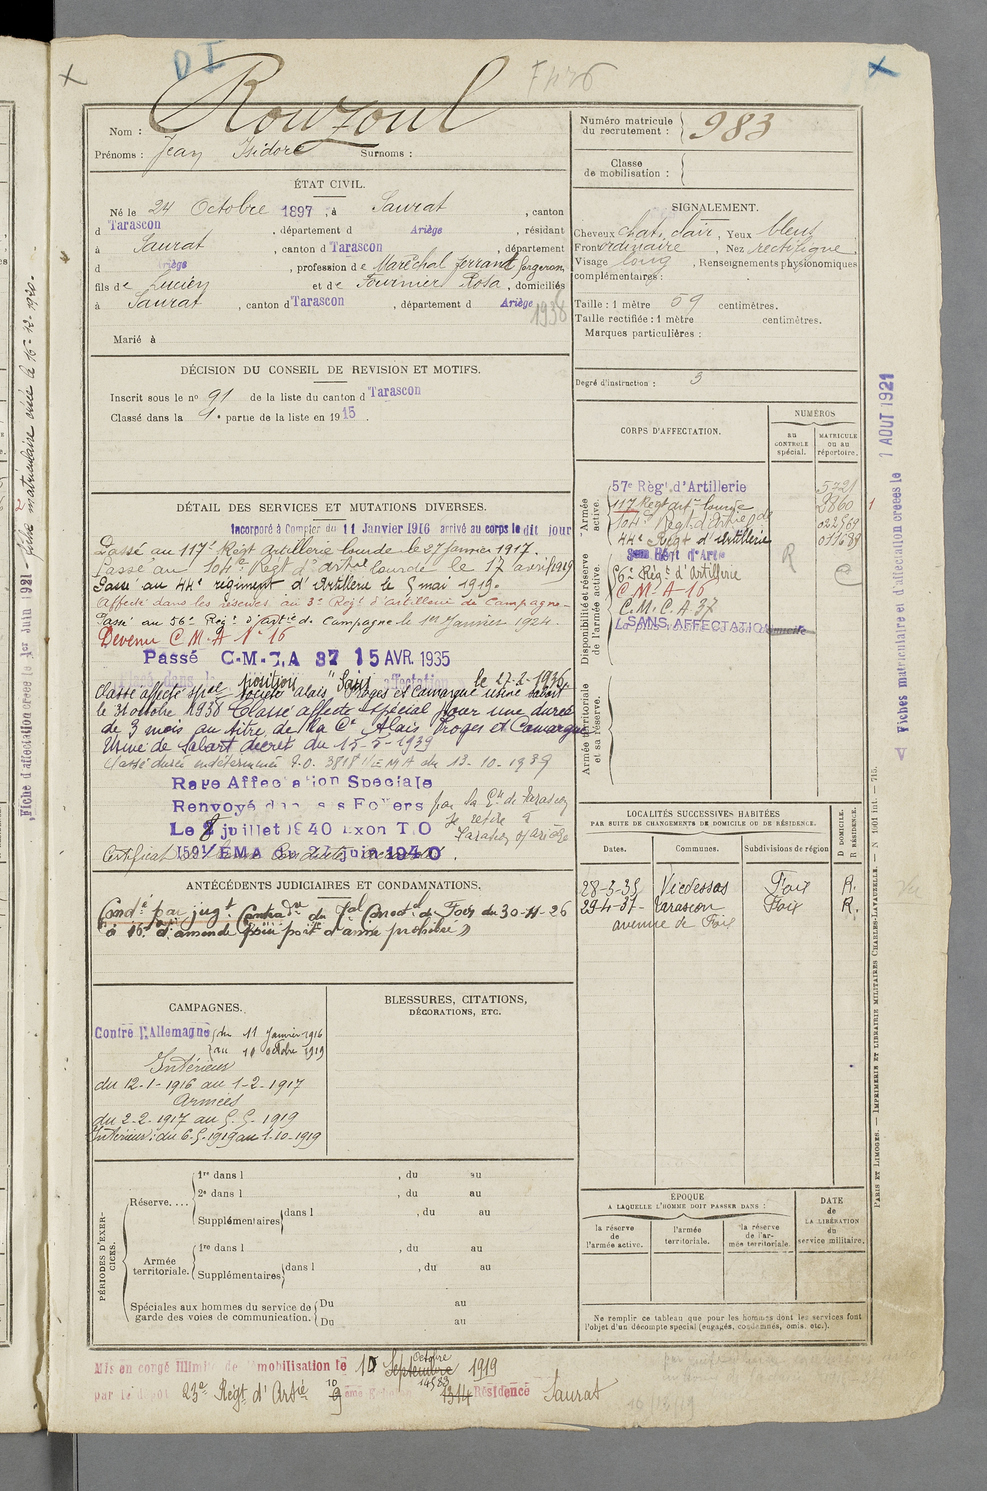 DI
Rouzoul
Nom :
Prénoms : Jean Isidore Surnoms :
Numéro matricule
du recrutement : 983
Classe
de mobilisation :
ÉTAT CIVIL.
Né le 24 Octobre 1897, à Saurat, canton
d Tarascon, département d Ariège, résidant
à Saurat, canton d Tarascon, département
d Ariège, profession de Maréchal ferrant forgeron,
fils de Lucien et de Fournier Rosa, domiciliés
à Saurat, canton d Tarascon, département d Ariège
1938
Marié à
SIGNALEMENT.
Cheveux chat. clair, Yeux bleus
Front ordinaire, Nez rectiligne
Visage long, Renseignements physionomiques
complémentaires :
Taille : 1 mètre 59 centimètres.
Taille rectifiée : 1 mètre centimètres.
Marques particulières :
Degré d'instruction : 3
DÉCISION DU CONSEIL DE REVISION ET MOTIFS.
Inscrit sous le no 91 de la liste du canton d Tarascon
Classé dans la 1e partie de la liste en 1915.
DÉTAIL DES SERVICES ET MUTATIONS DIVERSES.
Incorporé à Compter du 11 Janvier 1916 arrivé au corps le dit jour
Passé au 117e Régt Artillerie lourde le 27 Janvier 1917.
Passé au 104e Régt d'Artie lourde le 17 avril 1919
Passé au 44e régiment d'Artillerie le 5 mai 1919.
Affecté dans les réserves au 3e Régt d'artillerie de Campagne
Passé au 56e Régt d'art. de Campagne le 1er Janvier 1924.
Devenu C.M.A. No 16
Passé C.M.A 37 15 AVR. 1935
position "Sans affectation" le 27-2-1936
Classé affecté spal Société Alais Froges et Camargue usine Sabart
le 31 octobre 1938 Classé affecté spécial pour une durée
de 3 mois au titre de la Cie Alais Froges et Camargue
Usine de Sabart décret du 15-5-1939
Classé durée indéterminée D.O. 3818 /EMA du 13-10-1939
Raye Affectation Speciale
Renvoyé dans ses Foyers par la Gie de Tarascon
Le 8 juillet 1940 Exon T.O se retire à
Tarascon s/Ariège
1591/EMA du 27 juin 1940.
Certificat
CORPS D'AFFECTATION.
NUMÉROS
au
CONTRÔLE
spécial.
MATRICULE
ou au
répertoire.
Armée
active.
57e Régt d'Artillerie 5721
117 Régt art. lourde 2860
104e Régt d'Artie lde 022569
44e Régt d'Artillerie
Disponibilité et réserve
de l'armée active.
56e Régt d'Artillerie
C.M.A 16
C.M.C.A 37
SANS AFFECTATION
R
Armée territoriale
et sa réserve.
LOCALITÉS SUCCESSIVES HABITÉES
PAR SUITE DE CHANGEMENTS DE DOMICILE OU DE RÉSIDENCE.
Dates. Communes. Subdivisions de région
D DOMICILE.
R RÉSIDENCE.
28-3-35 Vicdessos Foix R.
29-4-37 Tarascon Foix R.
avenue de Foix
ANTÉCÉDENTS JUDICIAIRES ET CONDAMNATIONS.
Condé par jugt Contradre du Tal Corrctel de Foix du 30-11-26
"à 16f d'amende pour port d'arme prohibée"
CAMPAGNES.
Contre l'Allemagne du 11 Janvier 1916
au 10 octobre 1919
Intérieur
du 12-1-1916 au 1-2-1917
Armées
du 2-2-1917 au 5-5-1919
Intérieur : du 6-5-1919 au 1-10-1919
BLESSURES, CITATIONS,
DÉCORATIONS, ETC.
PÉRIODES D'EXERCICES.
Réserve....
1re dans l , du au
2e dans l , du au
Supplémentaires dans l , du au
Armée
territoriale.
1re dans l , du au
Supplémentaires dans l , du au
Spéciales aux hommes du service de
garde des voies de communication.
Du au
Du au
ÉPOQUE
A LAQUELLE L'HOMME DOIT PASSER DANS :
la réserve
de
l'armée active.
l'armée
territoriale.
la réserve
de l'armée territoriale.
DATE
de
LA LIBÉRATION
du
service militaire.
Ne remplir ce tableau que pour les hommes dont les services font
l'objet d'un décompte spécial (engagés, condamnés, omis, etc.).
Mis en congé illimité de démobilisation le 10 Septembre Octobre 1919
par le dépôt 23e Régt d'Artie Résidence Saurat
Fiche d'affectation créée le 1er Juin 1921
fiche matriculaire créée le 16-12-1920.
Fiches matriculaire et d'affectation créées le 1 AOUT 1921
PARIS ET LIMOGES. — IMPRIMERIE ET LIBRAIRIE MILITAIRES CHARLES-LAVAUZELLE. — N° 1001 int. — 715.